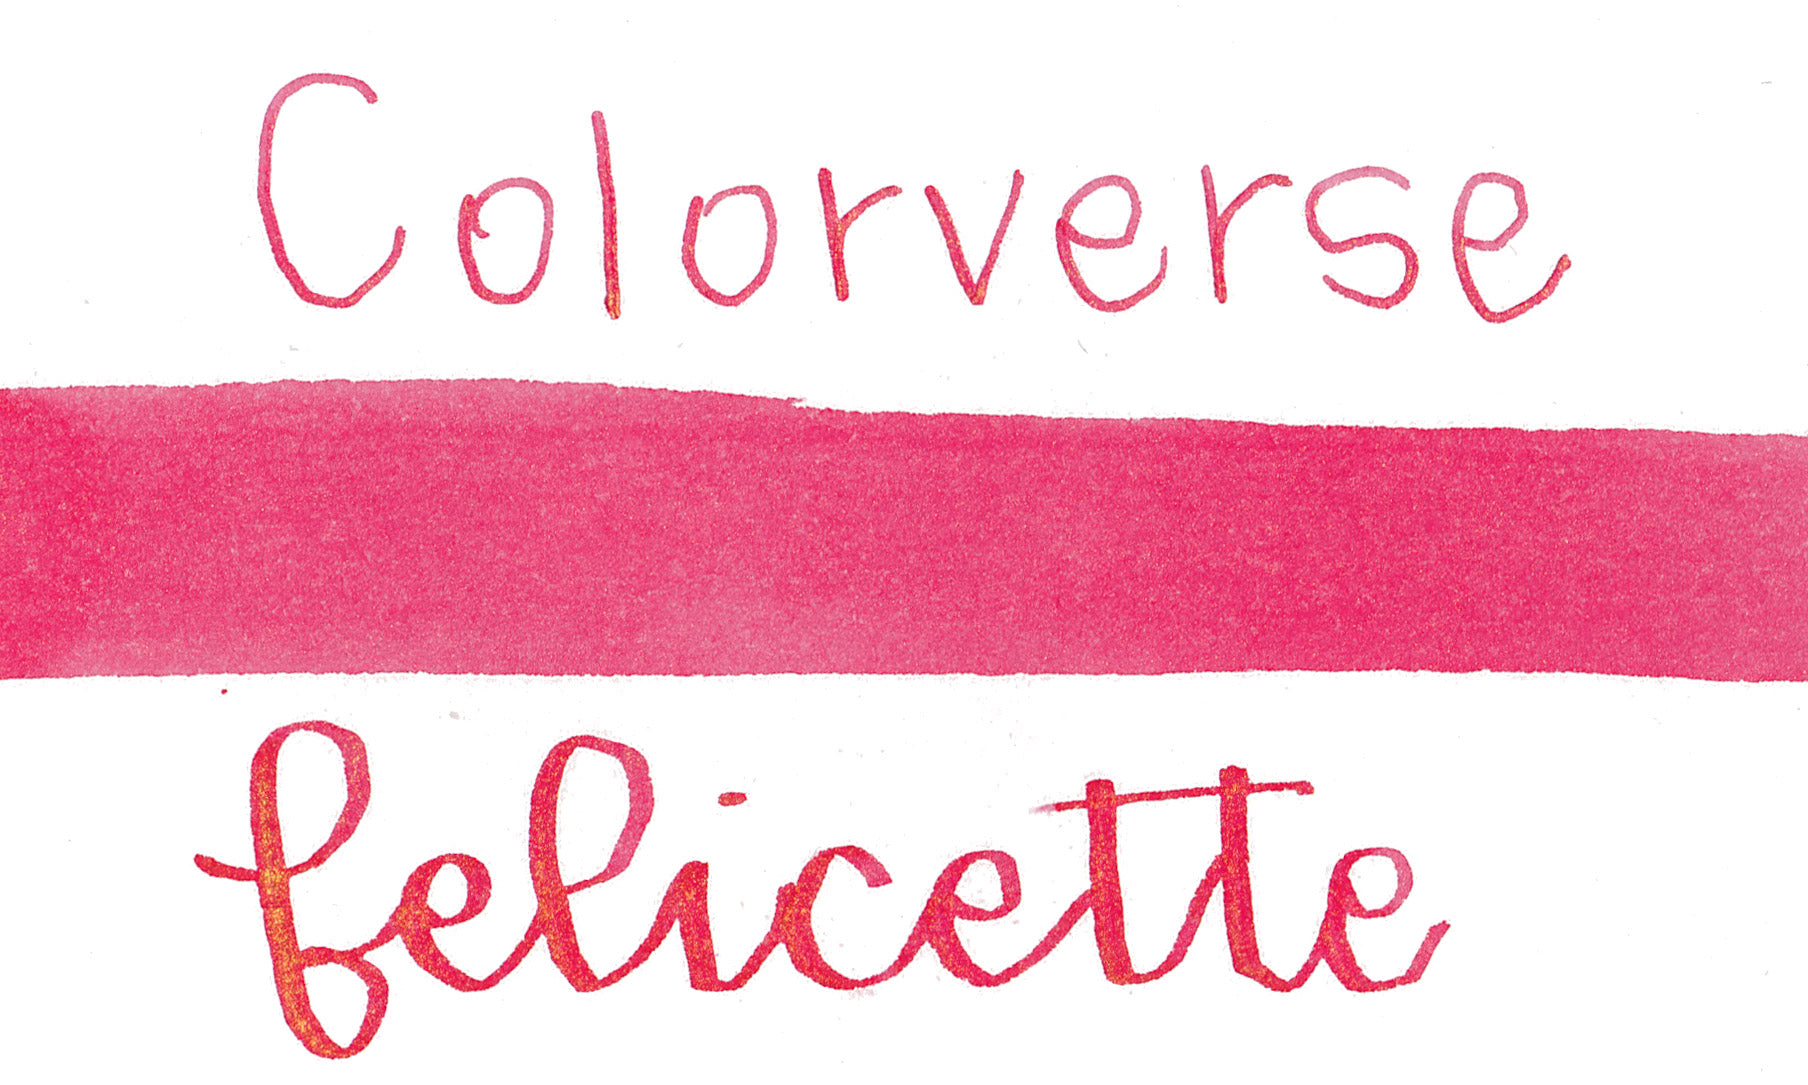 Colorverse
felicette